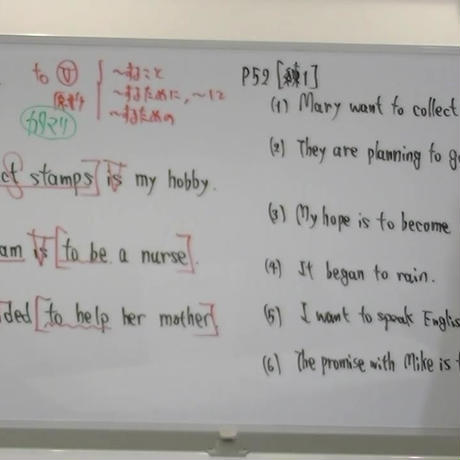 to Ⓥ
原形
カタマリ
~すること
~するために, ~して
~するための
ct stamps] is my hobby.
am is [to be a nurse].
ded [to help her mother]
P52 [練1]
(1) Mary want to collect
(2) They are planning to g
(3) My hope is to become
(4) It began to rain.
(5) I want to speak Englis
(6) The promise with Mike is t